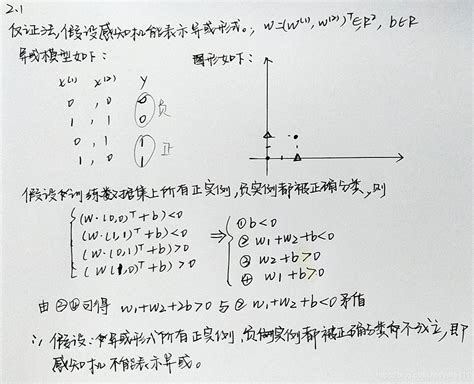 2.1
反证法,假设感知机能表示异或形式。, w=(w⁽¹⁾, w⁽²⁾)ᵀ∈R², b∈R
异或模型如下: 图形如下:
x⁽¹⁾ x⁽²⁾ Y
0 , 0 0 负
1 , 1 0
0 , 1 1 正
1 , 0 1
假设在训练数据集上所有正实例,负实例都被正确分类,则
(w·(0,0)ᵀ+b)<0 ⇒ ① b<0
(w·(1,1)ᵀ+b)<0 ② w1+w2+b<0
(w·(0,1)ᵀ+b)>0 ③ w2+b>0
(w(1,0)ᵀ+b)>0 ④ w1+b>0
由③④可得 w1+w2+2b>0 与② w1+w2+b<0矛盾
∴ 假设:异或形式所有正实例,负实例都被正确分类不成立,即
感知机不能表示异或。